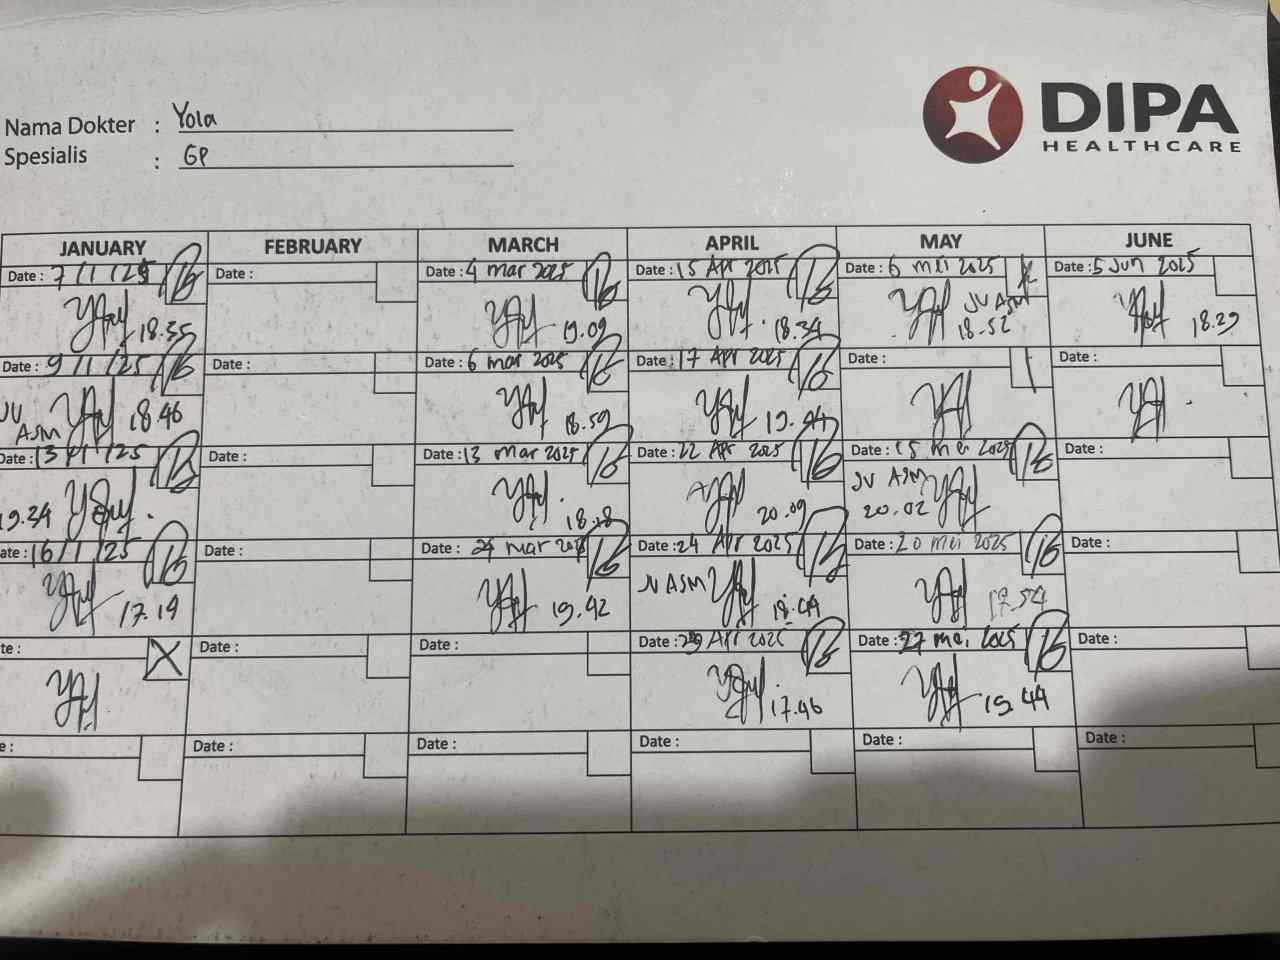 DIPA
HEALTHCARE
Nama Dokter : Yola
Spesialis : GP
JANUARY FEBRUARY MARCH APRIL MAY JUNE
Date : 7/1/25 Date : Date : 4 mar 2025 Date : 15 Apr 2025 Date : 6 mei 2025 Date : 5 Jun 2025
18.35 19.09 18.34 JV ASM 18.52 18.29
Date : 9/1/25 Date : Date : 6 mar 2025 Date : 17 Apr 2025 Date : Date :
JV ASM 18.46 18.59 19.44
Date : 13/1/25 Date : Date : 13 mar 2025 Date : 22 Apr 2025 Date : 15 mei 2025 Date :
19.34 18.18 20.09 JV ASM 20.02
ate : 16/1/25 Date : Date : mar 2025 Date : 24 Apr 2025 Date : 20 mei 2025 Date :
17.19 19.42 JV ASM 18.44 19.54
te : Date : Date : Date : 29 Apr 2025 Date : 27 mei 2025 Date :
17.46 19.44
e : Date : Date : Date : Date : Date :